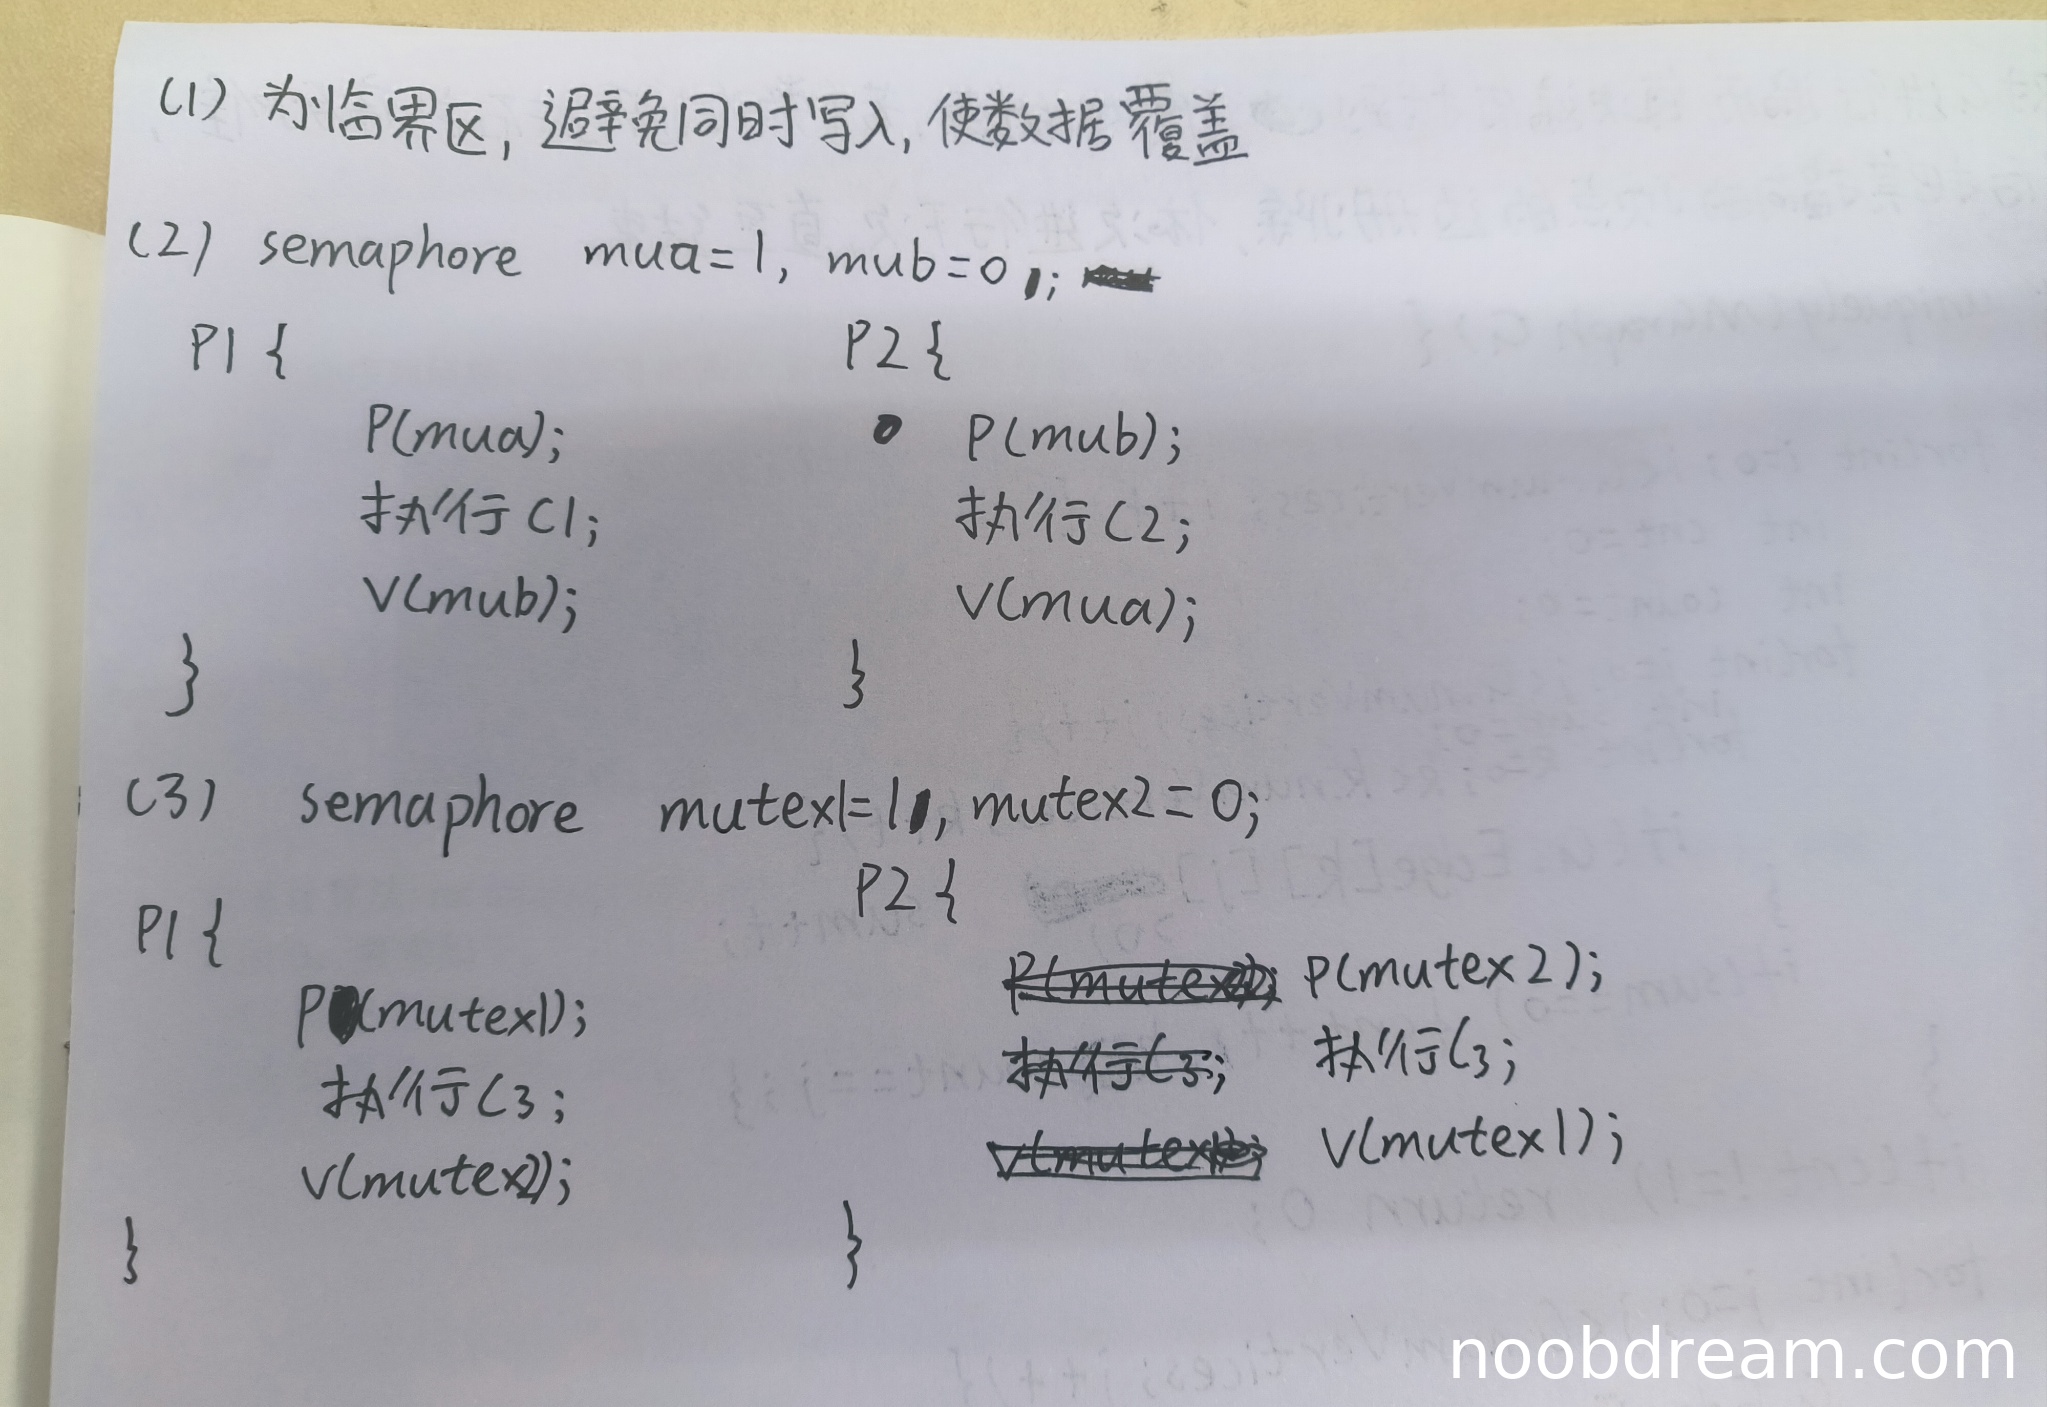 (1) 为临界区, 避免同时写入, 使数据覆盖
(2) semaphore mua=1, mub=0;
P1 {
P(mua);
执行C1;
V(mub);
}
P2 {
P(mub);
执行C2;
V(mua);
}
(3) semaphore mutex1=1, mutex2=0;
P1 {
P(mutex1);
执行C3;
V(mutex2);
}
P2 {
P(mutex2);
执行C3;
V(mutex1);
}
noobdream.com